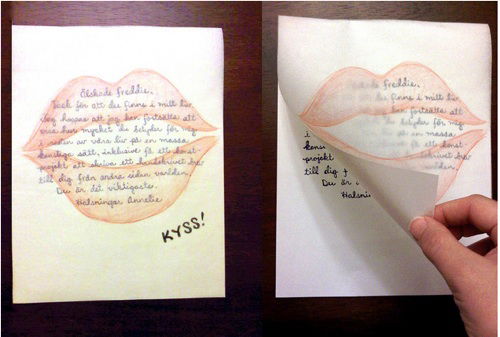 Älskade Freddie.
Tack för att du finns i mitt liv.
Jag hoppas att jag kan fortsätta att
visa hur mycket du betyder för mig
i resten av våra liv på en massa
konstiga sätt, inklusive få ett konst-
projekt att skriva ett handskrivet brev
till dig från andra sidan världen.
Du är det viktigaste.
Hälsningar Annelie
KYSS!
Freddie.
du finns i mitt liv.
jag kan fortsätta att
du betyder för mig
på en massa
i
få ett konst-
kons
handskrivet brev
projekt
världen.
till dig f
Du är
Hälsni